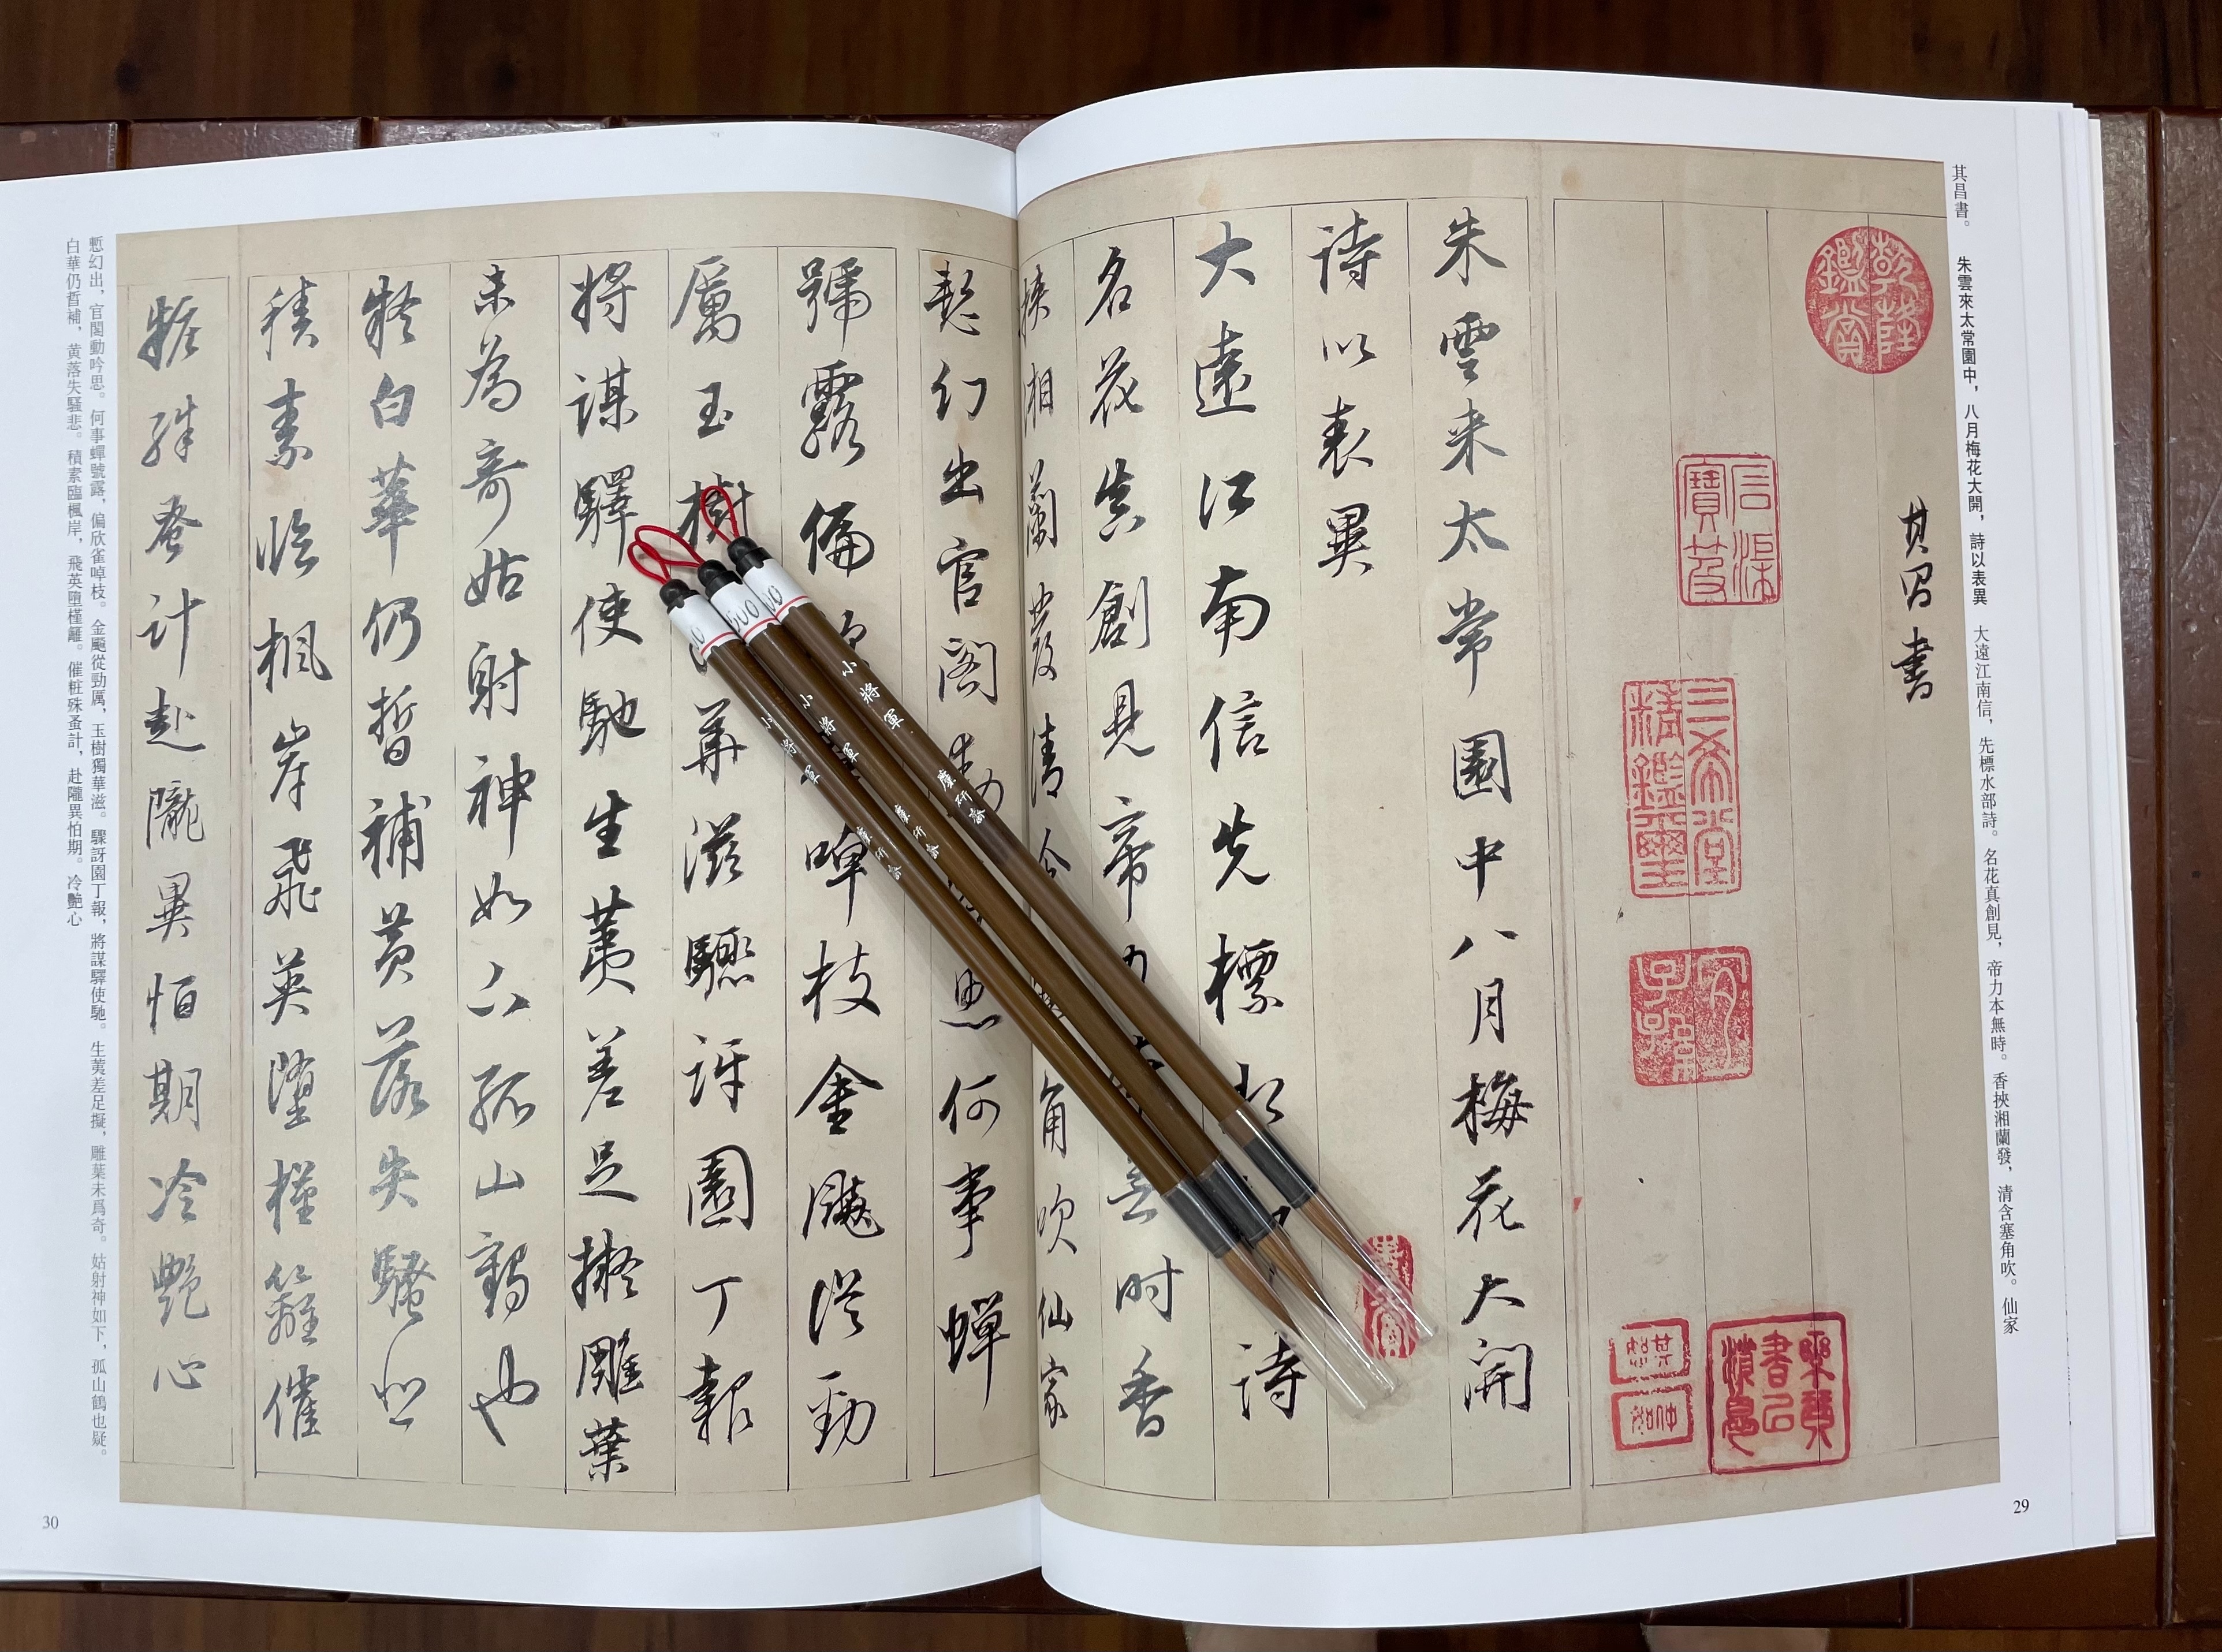 其昌書。　朱雲來太常園中，八月梅花大開，詩以表異　大遠江南信，先標水部詩。名花真創見，帝力本無時。香挾湘蘭發，清含塞角吹。仙家
乾隆鑑賞
其昌書
信渓寶茇
三希堂精鑑璽
宜子孫
朱雲来太常園中八月梅花大開
詩以表異
大遠江南信先標水詩
名花真創見帝力時香
挾湘蘭發清含角吹仙家
慙幻出官閣動思何事蟬
號露偏啅枝金飈從勁
厲玉樹華滋驟訝園丁報
將謀驛使馳生荑差足擬雕葉
未為奇姑射神如下孤山鶴也
疑白華仍晢補黃落失騷悲
積素臨楓岸飛英墮槿籬催
粧殊蚤計赴隴異怕期冷艷心
慙幻出，官閣動吟思。何事蟬號露，偏欣雀啅枝。金飈從勁厲，玉樹獨華滋。驟訝園丁報，將謀驛使馳。生荑差足擬，雕葉未爲奇。姑射神如下，孤山鶴也疑。
白華仍晢補，黃落失騷悲。積素臨楓岸，飛英墮槿籬。催粧殊蚤計，赴隴異怕期。冷艷心
小將軍
小將軍
小將軍
29
30